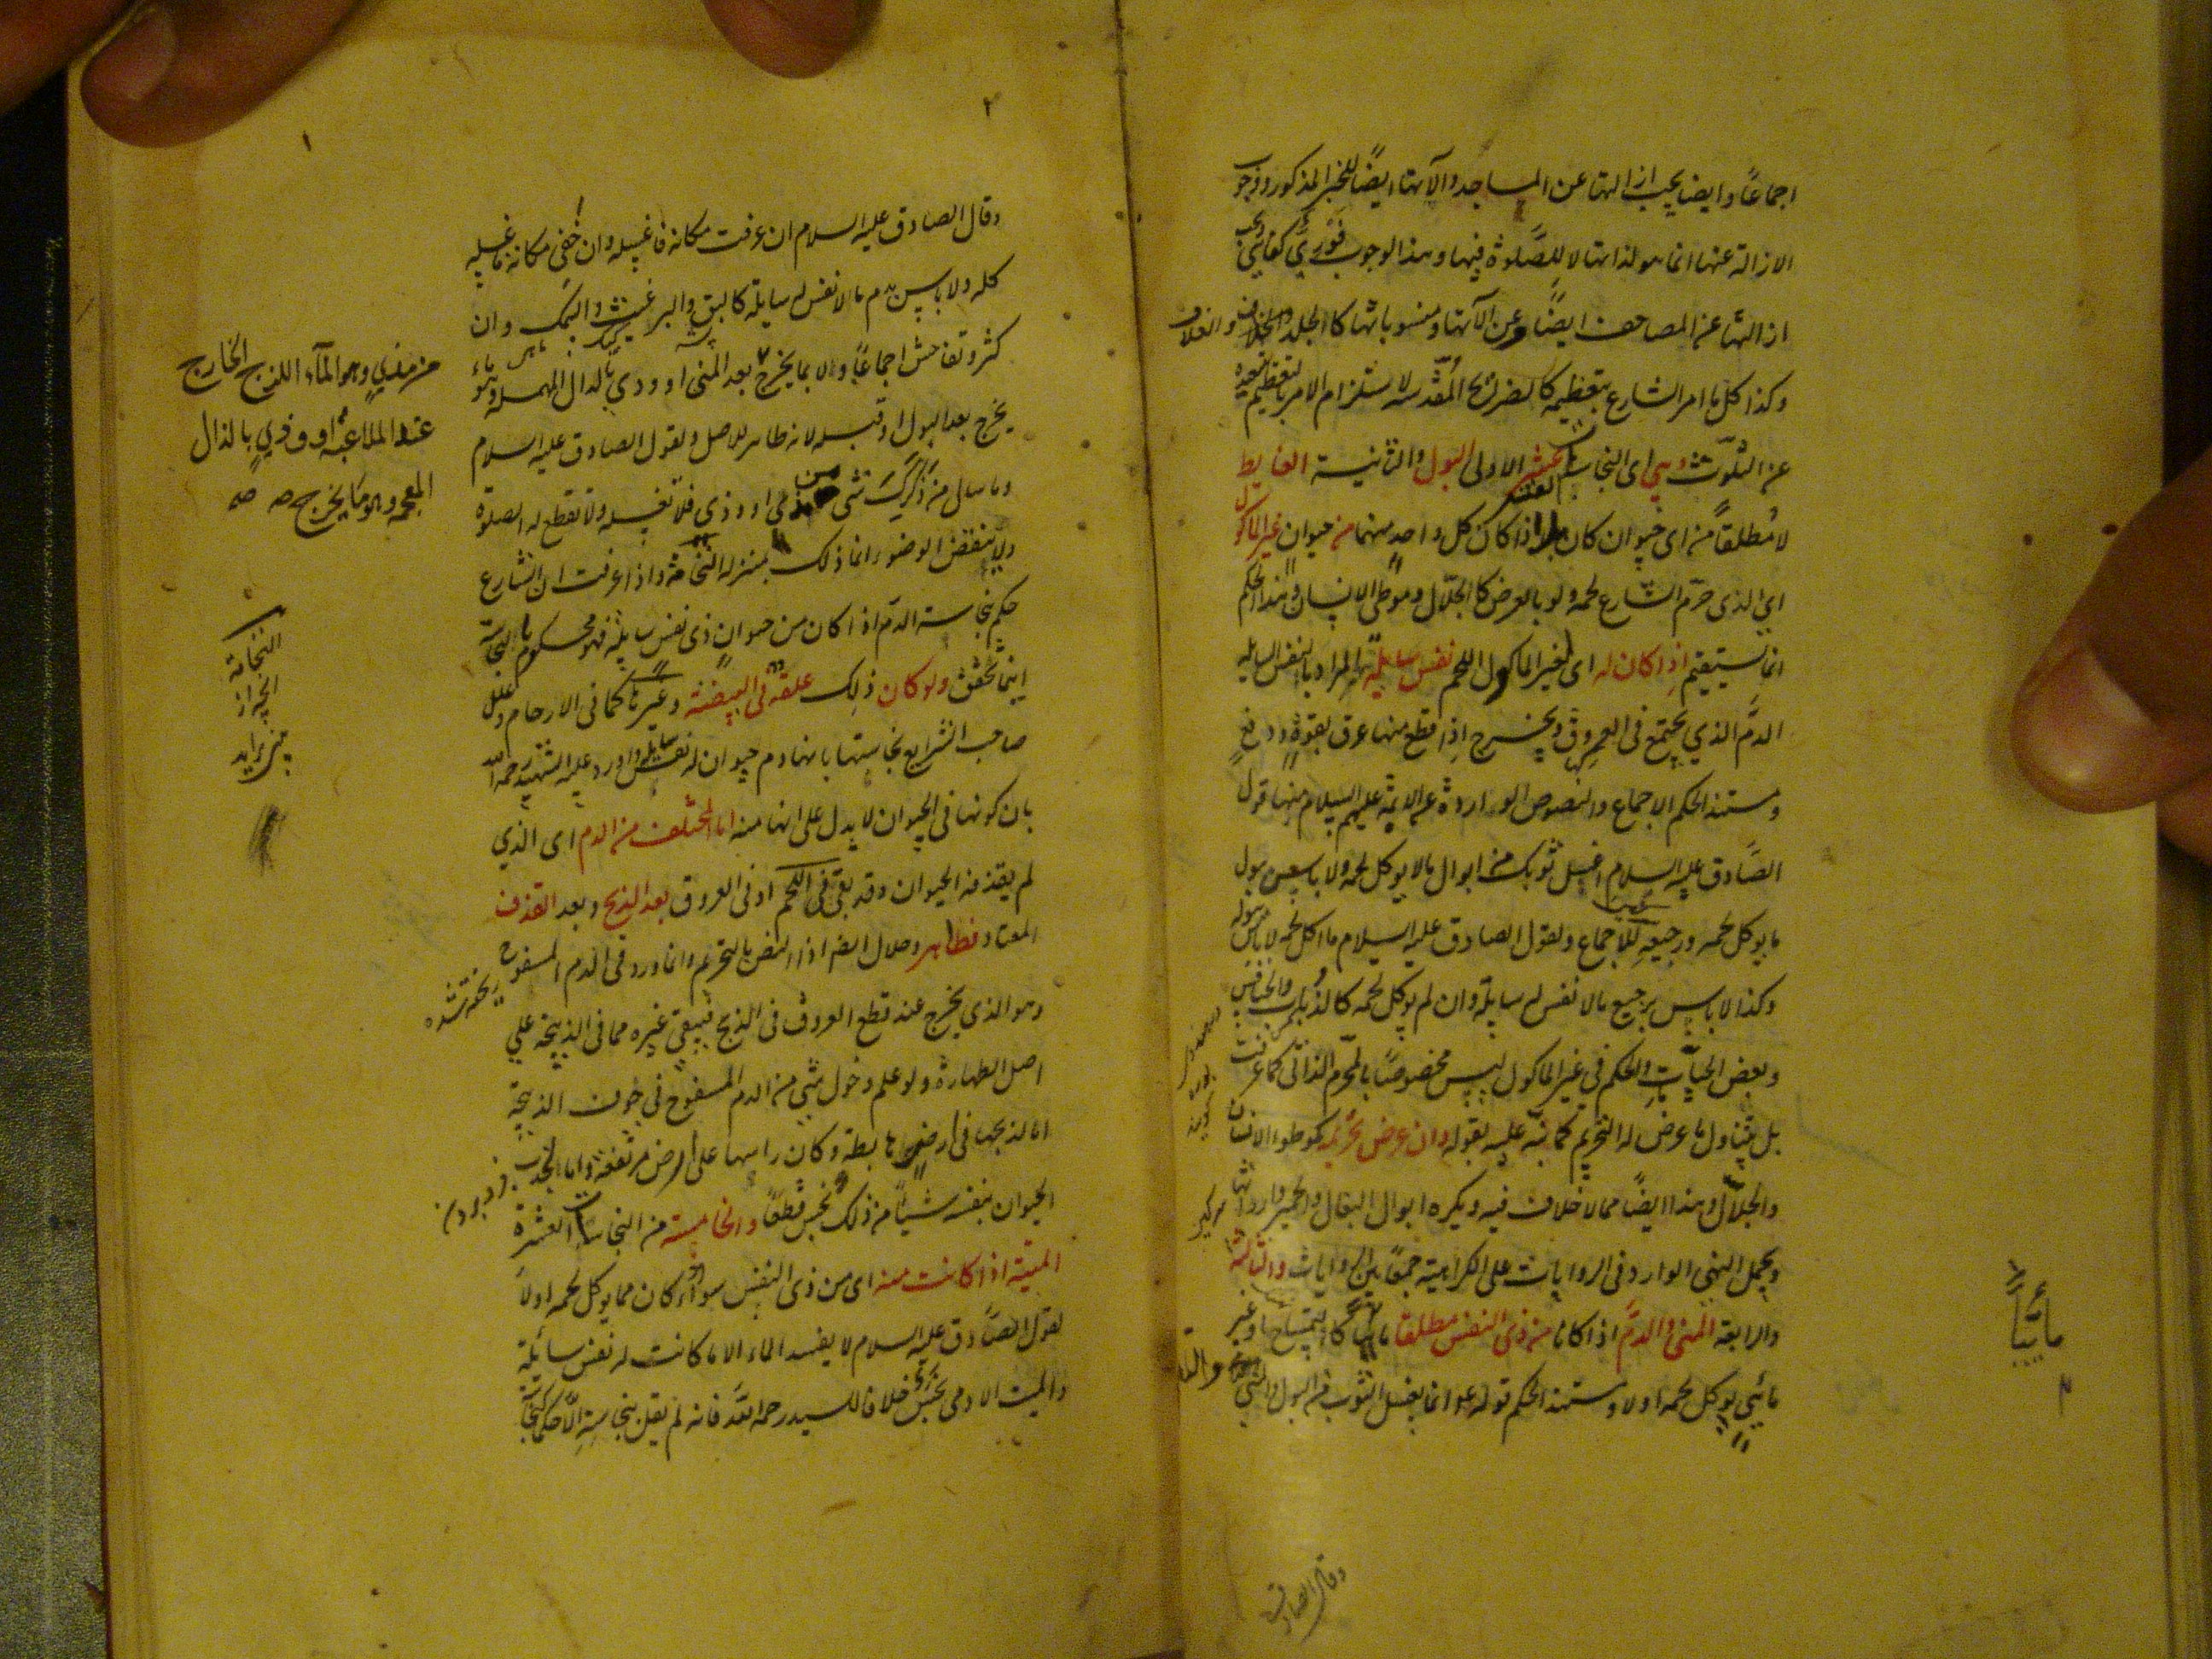 اجماعًا وايضا يجب ازالتها عن المساجد وآلاتها ايضًا للخبر المذكور ووجوب
الازالة عنها انما هو لذاتها لا للصّلوة فيها وهذا الوجوب فوريّ كفايي
ازالتها عن المصاحف ايضًا وعن آلاتها ومنسوباتها كالجلد والغلاف
وكذا كل ما امر الشارع بتعظيمه كالضرايح المقدسة لاستلزام الامر بالتعظيم
عن التلوّث وهي اى النجاسات عشر الاولى البول والثانية الغايط
لا مُطلقًا من اى حيوان كان بل اذا كان كل واحد منهما من حيوان غير الماكول
اى الذى حرّم الشارع لحمه ولو بالعرض كالجلّال وموطئ الانسان وهذا الحكم
انما يستقيم اذا كان له اى لغير الماكول اللحم نفس سايلة والمراد بالنفس السايلة
الدّم الذي يجتمع في العروق ويخرج اذا قطع منها عرق بقوة ودفع
ومستند الحكم الاجماع والنصوص الواردة عن الايمة عليهم السلام منها قول
الصّادق عليه السلام اغسل ثوبك من ابوال ما لا يوكل لحمه ولا باس من بول
ما يوكل لحمه ورجيعه للاجماع ولقول الصادق عليه السلام ما اكل لحمه لا باس ببوله
وكذا لا باس برجيع ما لا نفس له سايلة وان لم يوكل لحمه كالذُباب والخنافس
وبعض الحيّات والحكم في غير الماكول ليس مخصوصًا بالمحرّم الذاتى كما عرفت
بل يتناول ما عرض له التحريم كما نبّه عليه بقوله وان عرض تحريمه كموطوء الانسان
والجلّال وهذا ايضًا مما لا خلاف فيه ويكره ابوال البغال والحمير وارواثها
ويحمل النهى الوارد فى الروايات على الكراهية جمعًا بين الروايات والثالثة
والرابعة المنى والدّم اذا كانا من ذى النفس مطلقا مائيًا كان كالتمساح او غير
مائي يوكل لحمه اولا ومستند الحكم قوله ع انما يغسل الثوب من البول والمنى
مائيّاً
وقال الصادق
وقال الصادق عليه السلام ان عرفت مكانه فاغسله وان خفى مكانه فاغسله
كله ولا باس بدم ما لا نفس له سايلة كالبق والبرغيث والسمك وان
كثر وتفاحش اجماعًا ولا بما يخرج بعد المنى او ودي بالدال المهملة وهو ماء
يخرج بعد البول او قبله لانه طاهر للاصل ولقول الصادق عليه السلام
وما سال من ذكرك شى من مذى او وذى فلا تغسله ولا تقطع له الصلوة
ولا ينقض الوضوء انما ذلك بمنزلة النخامة واذا عرفت ان الشارع
حكم بنجاسة الدّم اذا كان من حيوان ذى نفس سايلة فهو محكوم بالنجاسة
اينما تحقق ولو كان ذلك علقة في البيضة وغيرها كما فى الارحام وعلل
صاحب الشرايع نجاستها بانها دم حيوان له نفس سايلة واورد عليه الشهيد رحمه الله
بان كونها فى الحيوان لا يدل على انها منه اما المتخلف من الدم اى الذي
لم يقذفه الحيوان وقد بقي فى اللحم او فى العروق بعد الذبح وبعد القذف
المعتاد فطاهر وحلال ايضا اذ النص بالتحريم انما ورد فى الدم المسفوح
وهو الذي يخرج عند قطع العروق فى الذبح فيبقى غيره مما فى الذبيحة على
اصل الطهارة ولو علم دخول شي من الدم المسفوح في جوف الذبيحة
اما لذبحها فى ارض هابطة وكان راسها على ارض مرتفعة واما لجذب
الحيوان بنفسه شيئًا من ذلك نجس قطعًا والخامسة من النجاسات العشرة
الميتة اذا كانت منه اى من ذى النفس سواء كان مما يوكل لحمه اولا
لقول الصّادق عليه السلام لا يفسد الماء الا ما كانت له نفس سائلة
والميت الادمى نجس خلافا للسيد رحمه الله فانه لم يقل بنجاسته الّا حكما
من مذي وهو المآء اللزج الخارج
عند الملاعبة او وذي بالذال
المعجمة وهو ما يخرج صح
النخامة